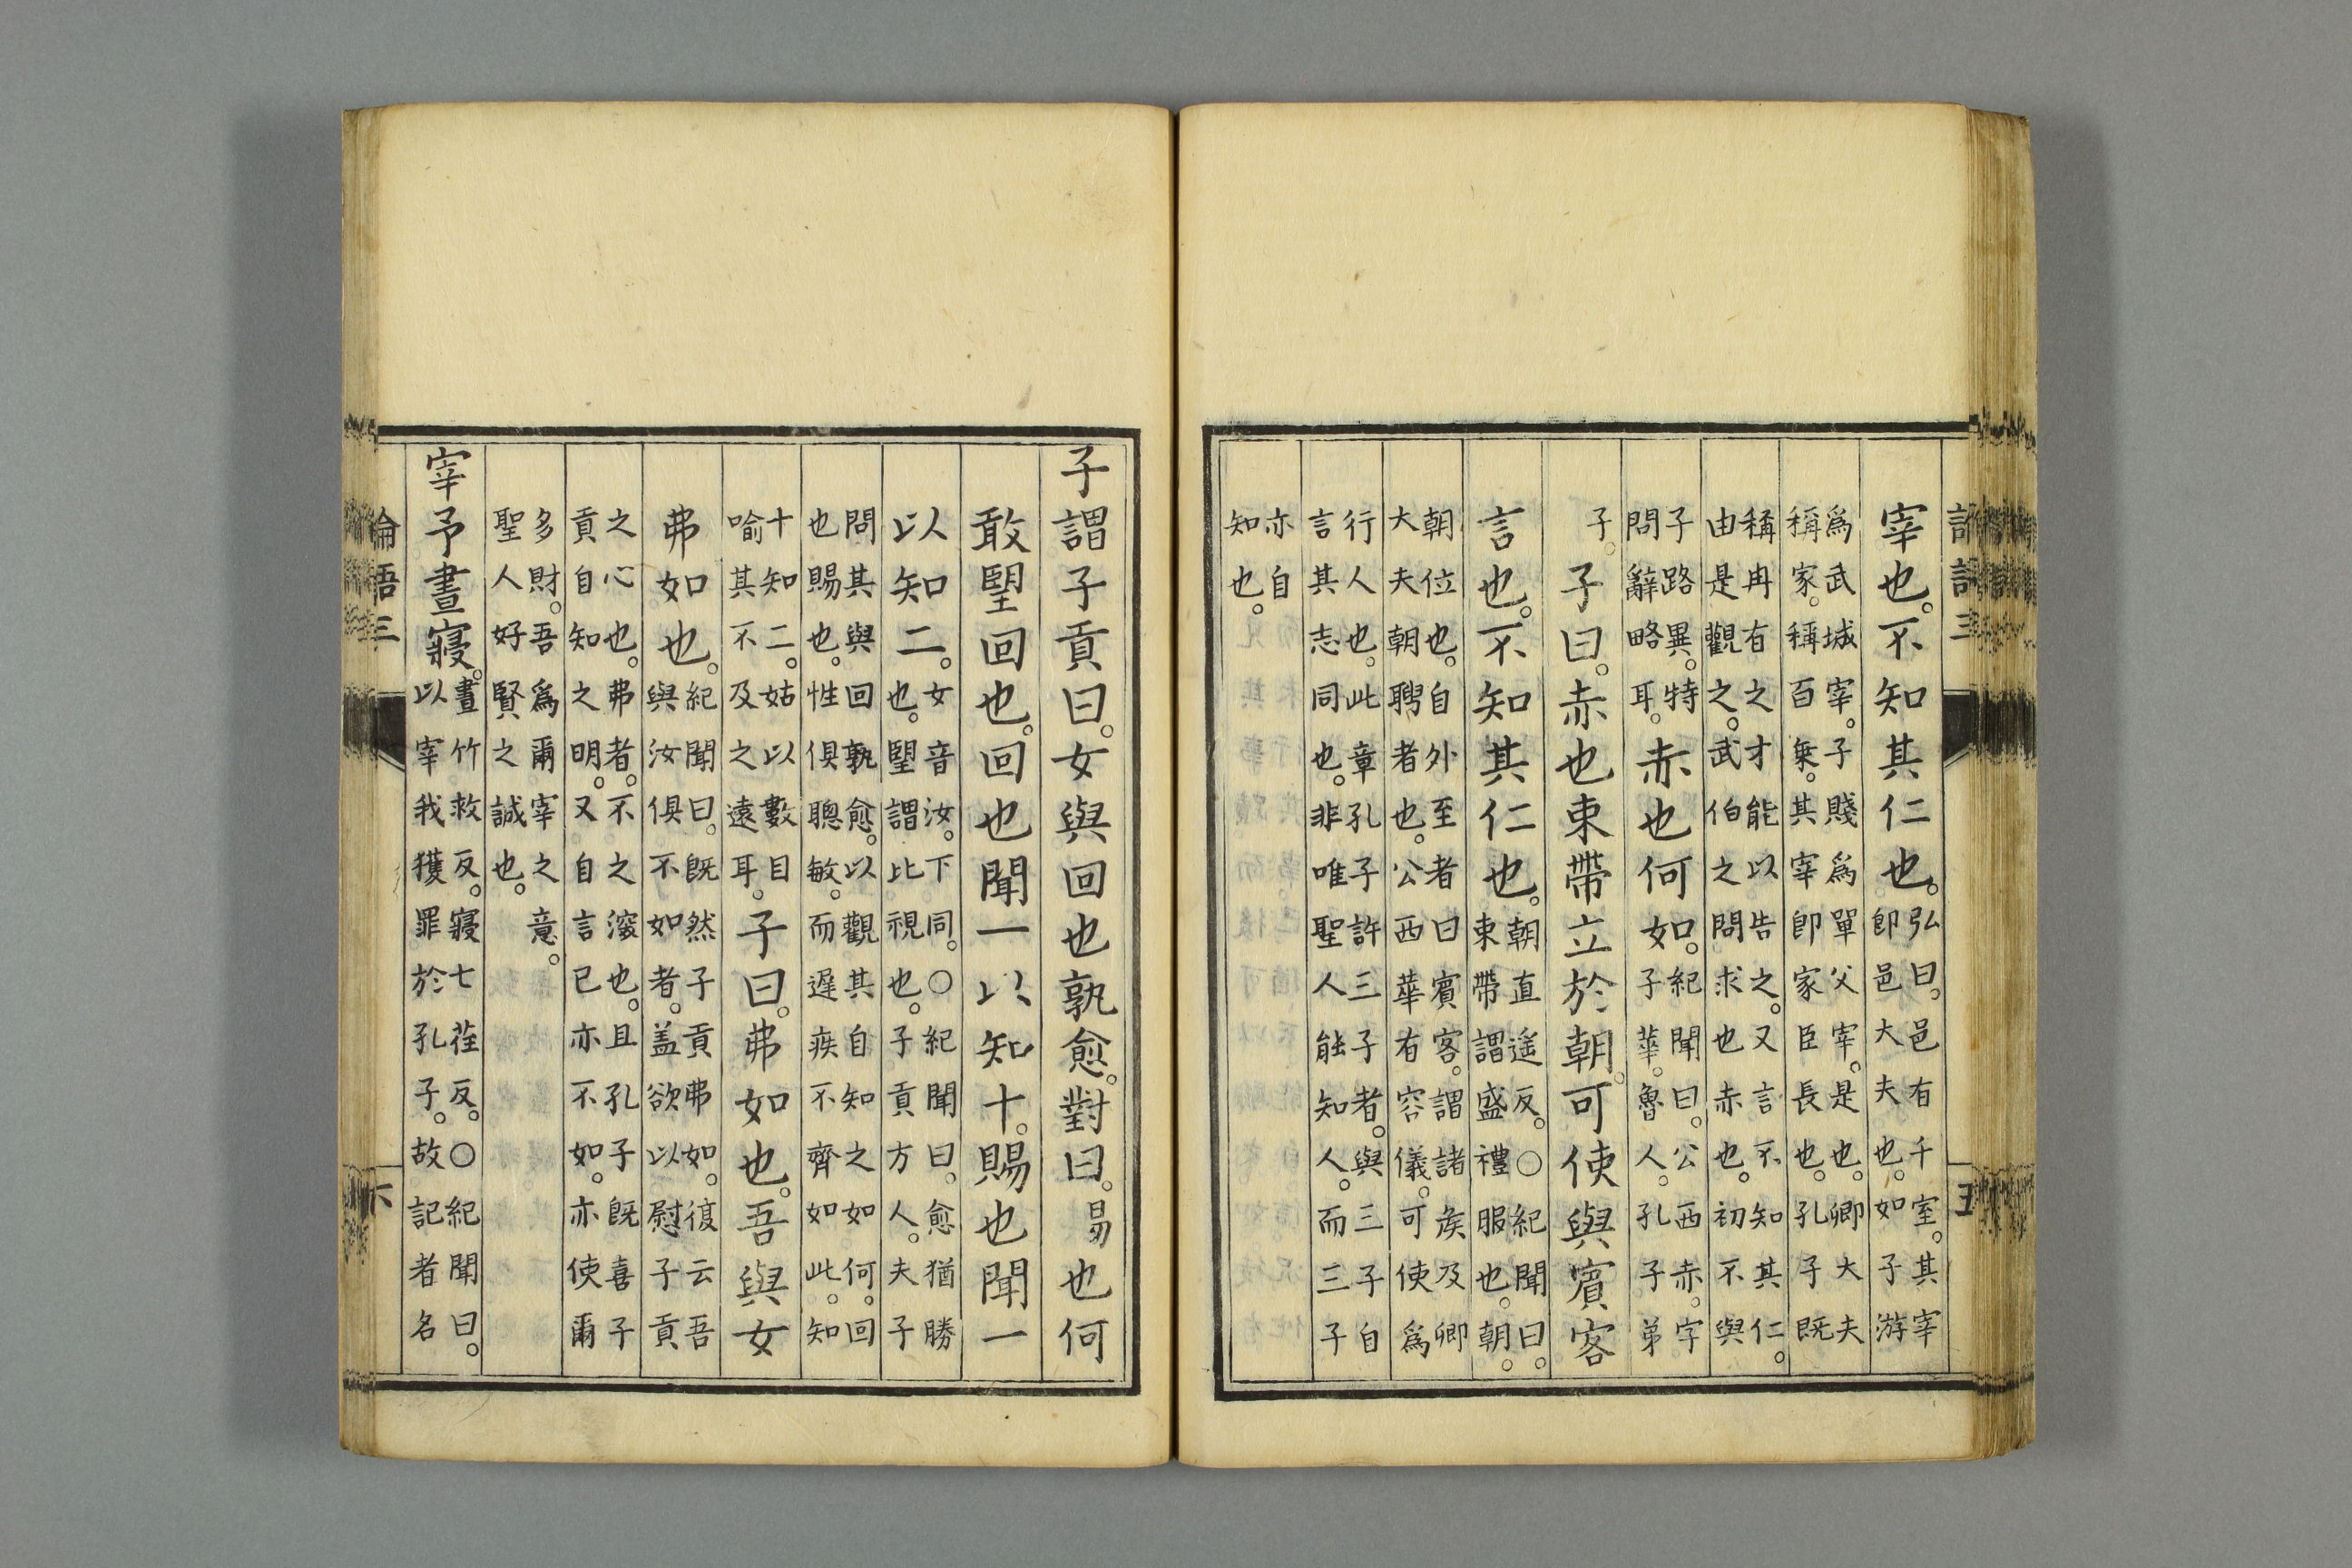 三
五
宰也。不知其仁也。弘曰。邑有千室。其宰
卽邑大夫也。如子游
爲武城宰。子賤爲單父宰。是也。卿大夫
稱家。稱百乘。其宰卽家臣長也。孔子既
稱冉有之才能以告之。又言不知其仁。
由是觀之。武伯之問求也赤也。初不與
子路異。特
問辭略耳。赤也何如。紀聞曰。公西赤。字
子華。魯人。孔子弟
子。子曰。赤也束帶立於朝。可使與賓客
言也。不知其仁也。朝直遙反。〇紀聞曰。
束帶謂盛禮服也。朝。
朝位也。自外至者曰賓客。謂諸侯及卿
大夫朝聘者也。公西華有容儀。可使爲
行人也。此章孔子許三子者。與三子自
言其志同也。非唯聖人能知人。而三子
亦自
知也。
子謂子貢曰。女與回也孰愈。對曰。賜也何
敢望回也。回也聞一以知十。賜也聞一
以知二。女音汝。下同。〇紀聞曰。愈猶勝
也。望謂比視也。子貢方人。夫子
問其與回孰愈。以觀其自知之如何。回
也賜也。性俱聰敏。而遲疾不齊如此。知
十知二。姑以數目
喻其不及之遠耳。子曰。弗如也。吾與女
弗如也。紀聞曰。既然子貢弗如。復云吾
與汝俱不如者。盖欲以慰子貢
之心也。弗者。不之深也。且孔子既喜子
貢自知之明。又自言已亦不如。亦使爾
多財。吾爲爾宰之意。
聖人好賢之誠也。
宰予晝寢。晝竹救反。寢七荏反。〇紀聞曰。
以宰我獲罪於孔子。故記者名
論語三
六